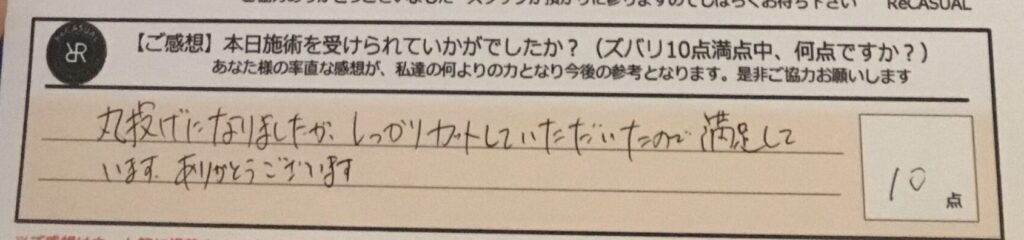 ReCASUAL
【ご感想】本日施術を受けられていかがでしたか？（ズバリ10点満点中、何点ですか？）
あなた様の率直な感想が、私達の何よりの力となり今後の参考となります。是非ご協力お願いします
丸投げになりましたが、しっかりカットしていただいたので満足して
います。ありがとうございます
10点